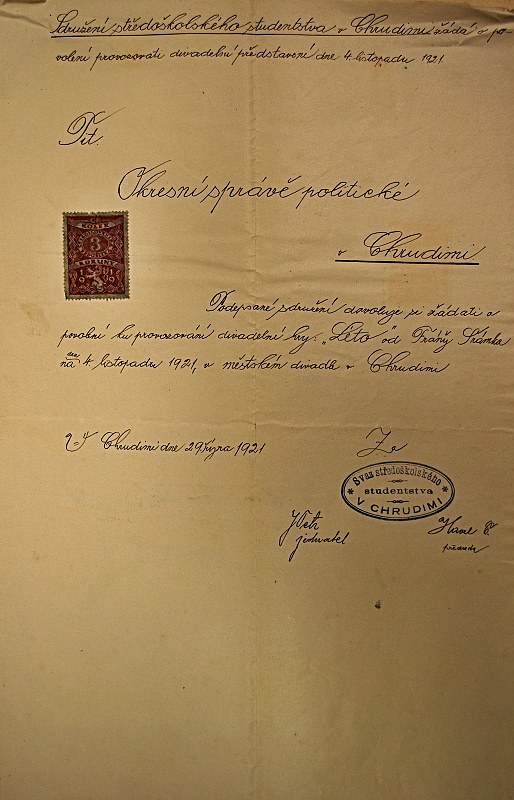 Sdružení středoškolského studentstva v Chrudimi žádá o po-
volení provozovati divadelní představení dne 4. listopadu 1921
Tit.
Okresní správě politické
v Chrudimi
KOLEK
3
KORUNY
1919
Podepsané sdružení dovoluje si žádati o
povolní ku provozování divadelní hry „Léto" od Fráňi Šrámka
na den 4. listopadu 1921, v městském divadle v Chrudimi
V Chrudimi dne 29 října 1921
Za
Svaz středoškolského
studentstva
V CHRUDIMI
jednatel
předseda